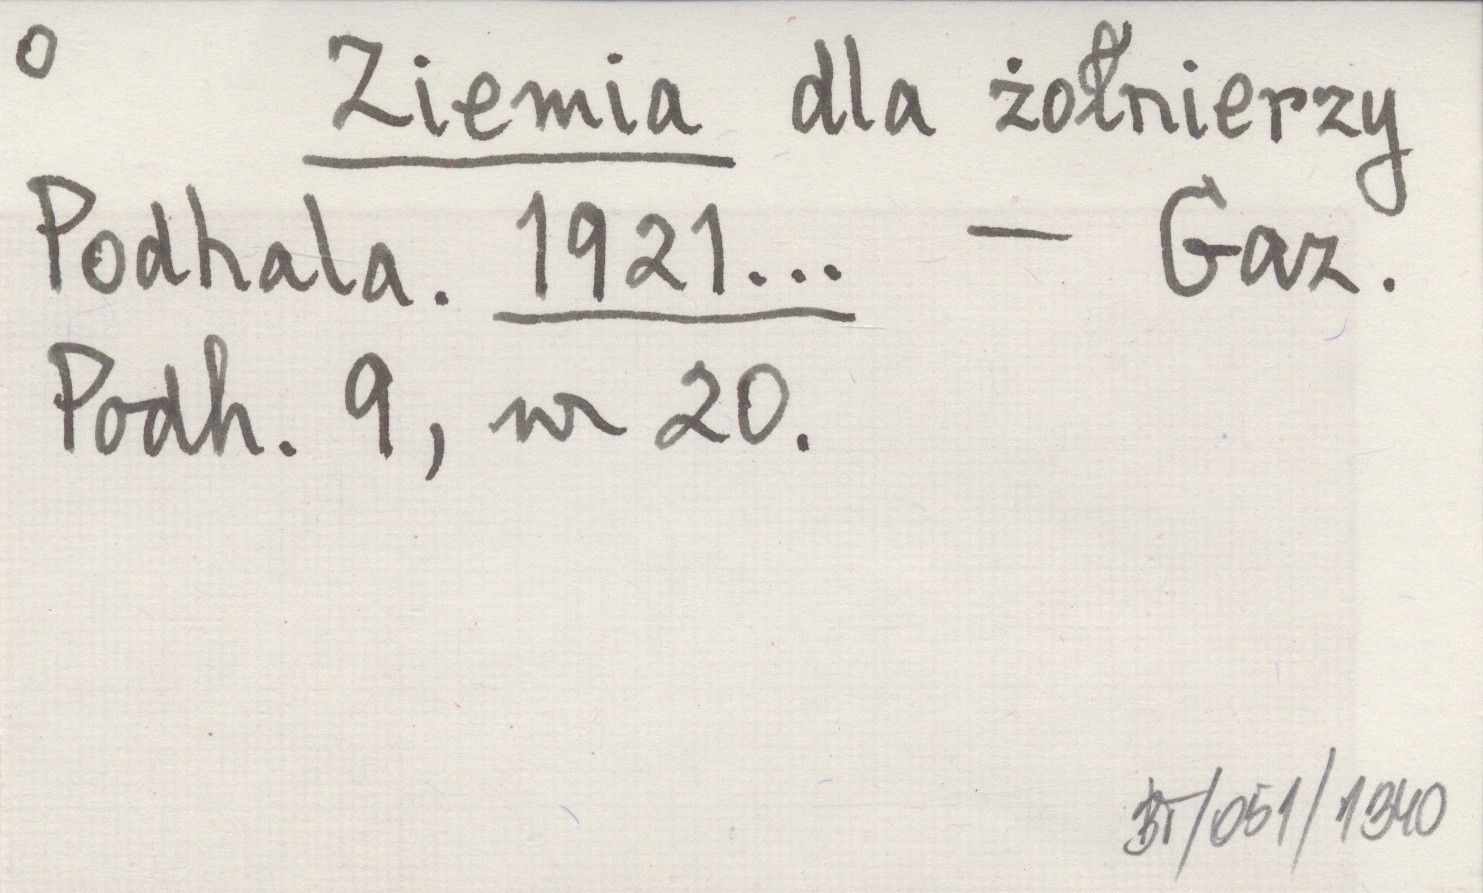 o Ziemia dla żołnierzy
Podhala. 1921... — Gaz.
Podh. 9, nr 20.
BT/051/1340